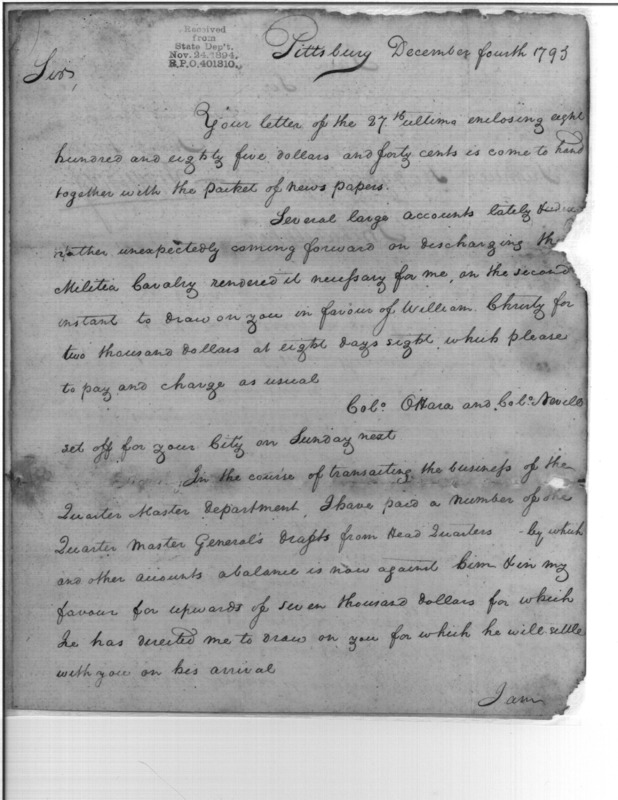 Received
from
State Dep't.
Nov. 24. 1894.
R.P.O. 401310.
Pittsburg December fourth 1793
Sir,
Your letter of the 27th ultimo enclosing eight
hundred and eighty five dollars and forty cents is come to hand
together with the packet of news papers.
Several large accounts lately
rather unexpectedly coming forward on discharging the
Militia Cavalry rendered it necessary for me, on the second
instant to draw on you in favour of William Christy for
two thousand dollars at eight days sight, which please
to pay and charge as usual
Colo. OHara and Colo. Nevill
set off for your City on Sunday next
In the course of transacting the business of the
Quarter Master department, I have paid a number of the
Quarter Master General's drafts from Head Quarters - by which
and other accounts a balance is now against him & in my
favour for upwards of seven thousand dollars for which
he has directed me to draw on you for which he will settle
with you on his arrival
I am